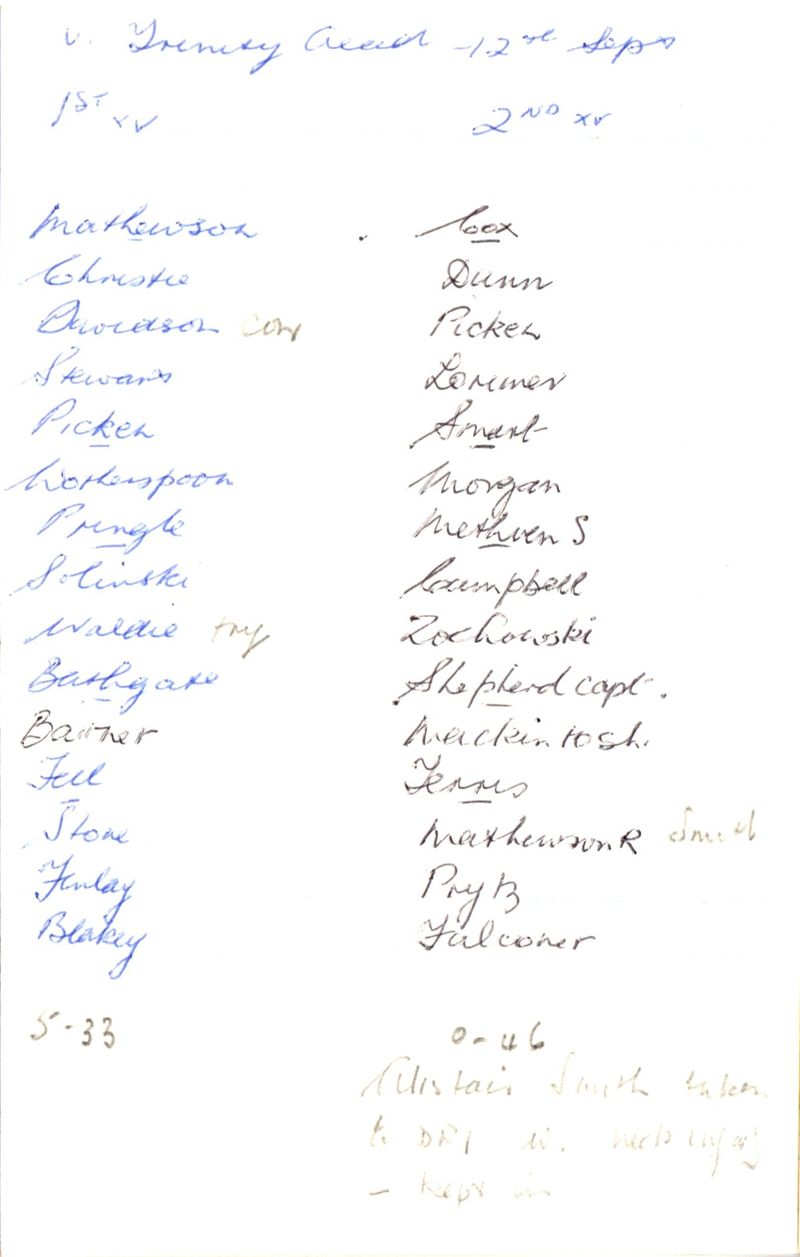 v. Trinity Acad - 12th Sept
1ST XV
2ND XV
Mathewson
Christie
Davidson con
Stewart
Picken
Wotherspoon
Pringle
Solinski
Waldie try
Bathgate
Barner
Fell
Stone
Finlay
Blakey
5-33
Cox
Dunn
Picken
Lorimer
Smart
Morgan
Methven S
Campbell
Zochowski
Shepherd capt.
Mackintosh.
Ferris
Mathewson R Smith
Prytz
Falconer
0-46
Alistair Smith taken
to DRI w. neck injury
- kept in